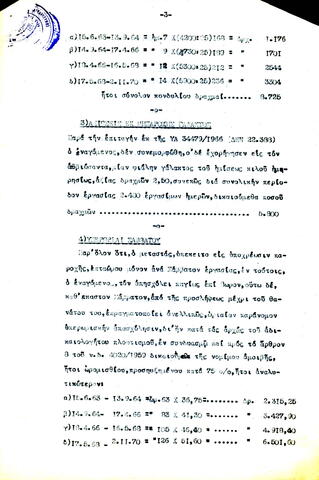 -3-
α)15.6.63-13.9.64 = ἡμ.7 Χ(4200:25)168 = δρχ. 1.176
β)14.9.64-17.4.66 = " 9 Χ(4730:25)189 = " 1701
γ)18.4.66-16.5.68 = " 12 Χ(5300:25)212 = " 2544
δ)17.5.68-2.11.70 = " 14 Χ(5900:25)236 = " 3304
ἤτοι σύνολον κονδυλίου δραχμαί........ 8.725
-ο-
Παρά τήν ἐπιταγήν ἐκ τῆς ΥΑ 34479/1966 (ΔΕΝ 22.388)
ὁ ἐναγόμενος, δέν συνεμορφώθη, οὐδέ ἐχορήγησεν εἰς τόν
ἀποβιώσαντα, μίαν φιάλην γάλακτος τοῦ ἡμίσεος κιλοῦ ἡμε
ρησίως, ἀξίας δραχμῶν 2,50, συνεπῶς διά συνολικήν περίο-
δον ἐργασίας 2.400 ἐργασίμων ἡμερῶν, δικαιούμεθα ποσοῦ
δραχμῶν
-ο-
4)ΥΠΕΡΩΡΙΑΙ ΣΑΒΒΑΤΟΥ
Παρ'ὅλον ὅτι, ὁ μεταστάς, ὑπέκειτο εἰς ὑποχρέωσιν πα-
ροχῆς, ἑπταώρου μόνον ἀνά Σάββατον ἐργασίας, ἐν τούτοις,
ὁ ἐναγόμενος, τόν ἀπησχόλει παγίως ἐπί
καθ'ἕκαστον Σάββατον, ἀπό τῆς προσλήψεως μέχρι τοῦ θα-
νάτου του, πραγματοποιεῖ ἀνελλιπῶς,
ὑπερωριακήν ἀπασχόλησιν, δι'ἥν κατά τάς ἀρχάς τοῦ ἀδι-
καιολογήτου πλουτισμοῦ, ἐν συνδυασμῷ καί πρός τό ἄρθρον
8 τοῦ ν.δ. 4020/1959 δικαιοῦμαι τῆς νομίμου ἀμοιβῆς,
ἤτοι ὡρομισθίου, προσηυξημένου κατά 75 ο/ο, ἤτοι ἀναλυ-
τικώτερον:
α)15.6.63 - 13.9.64 =Δρ.63 Χ 36,75=...... Δρ. 2.315,25
β)14.9.64- 17.4.66 =" 83 Χ 41,30=...... " 3.427,90
γ)18.4.66 - 16.5.68 =" 106 Χ 46,40 =..... " 4.918,40
δ)17.5.68 - 2.11.70 = "126 Χ 51,60 =..... " 6.501,60